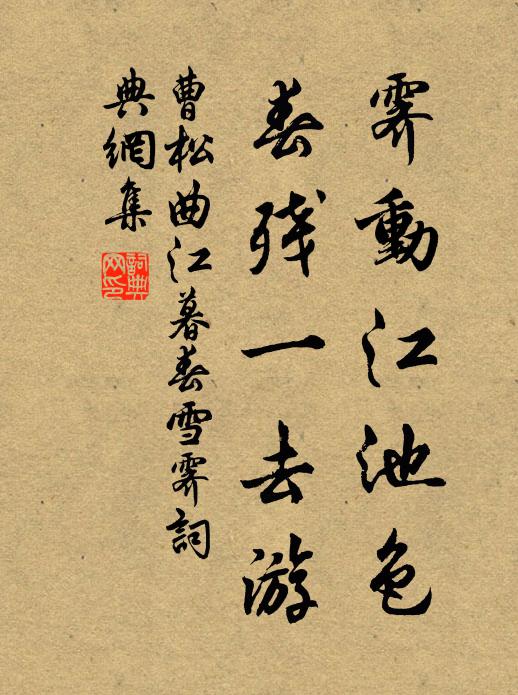 霁動江池色
春残一去游
曹松曲江暮春雪霁詞
典網集
詞典
网印